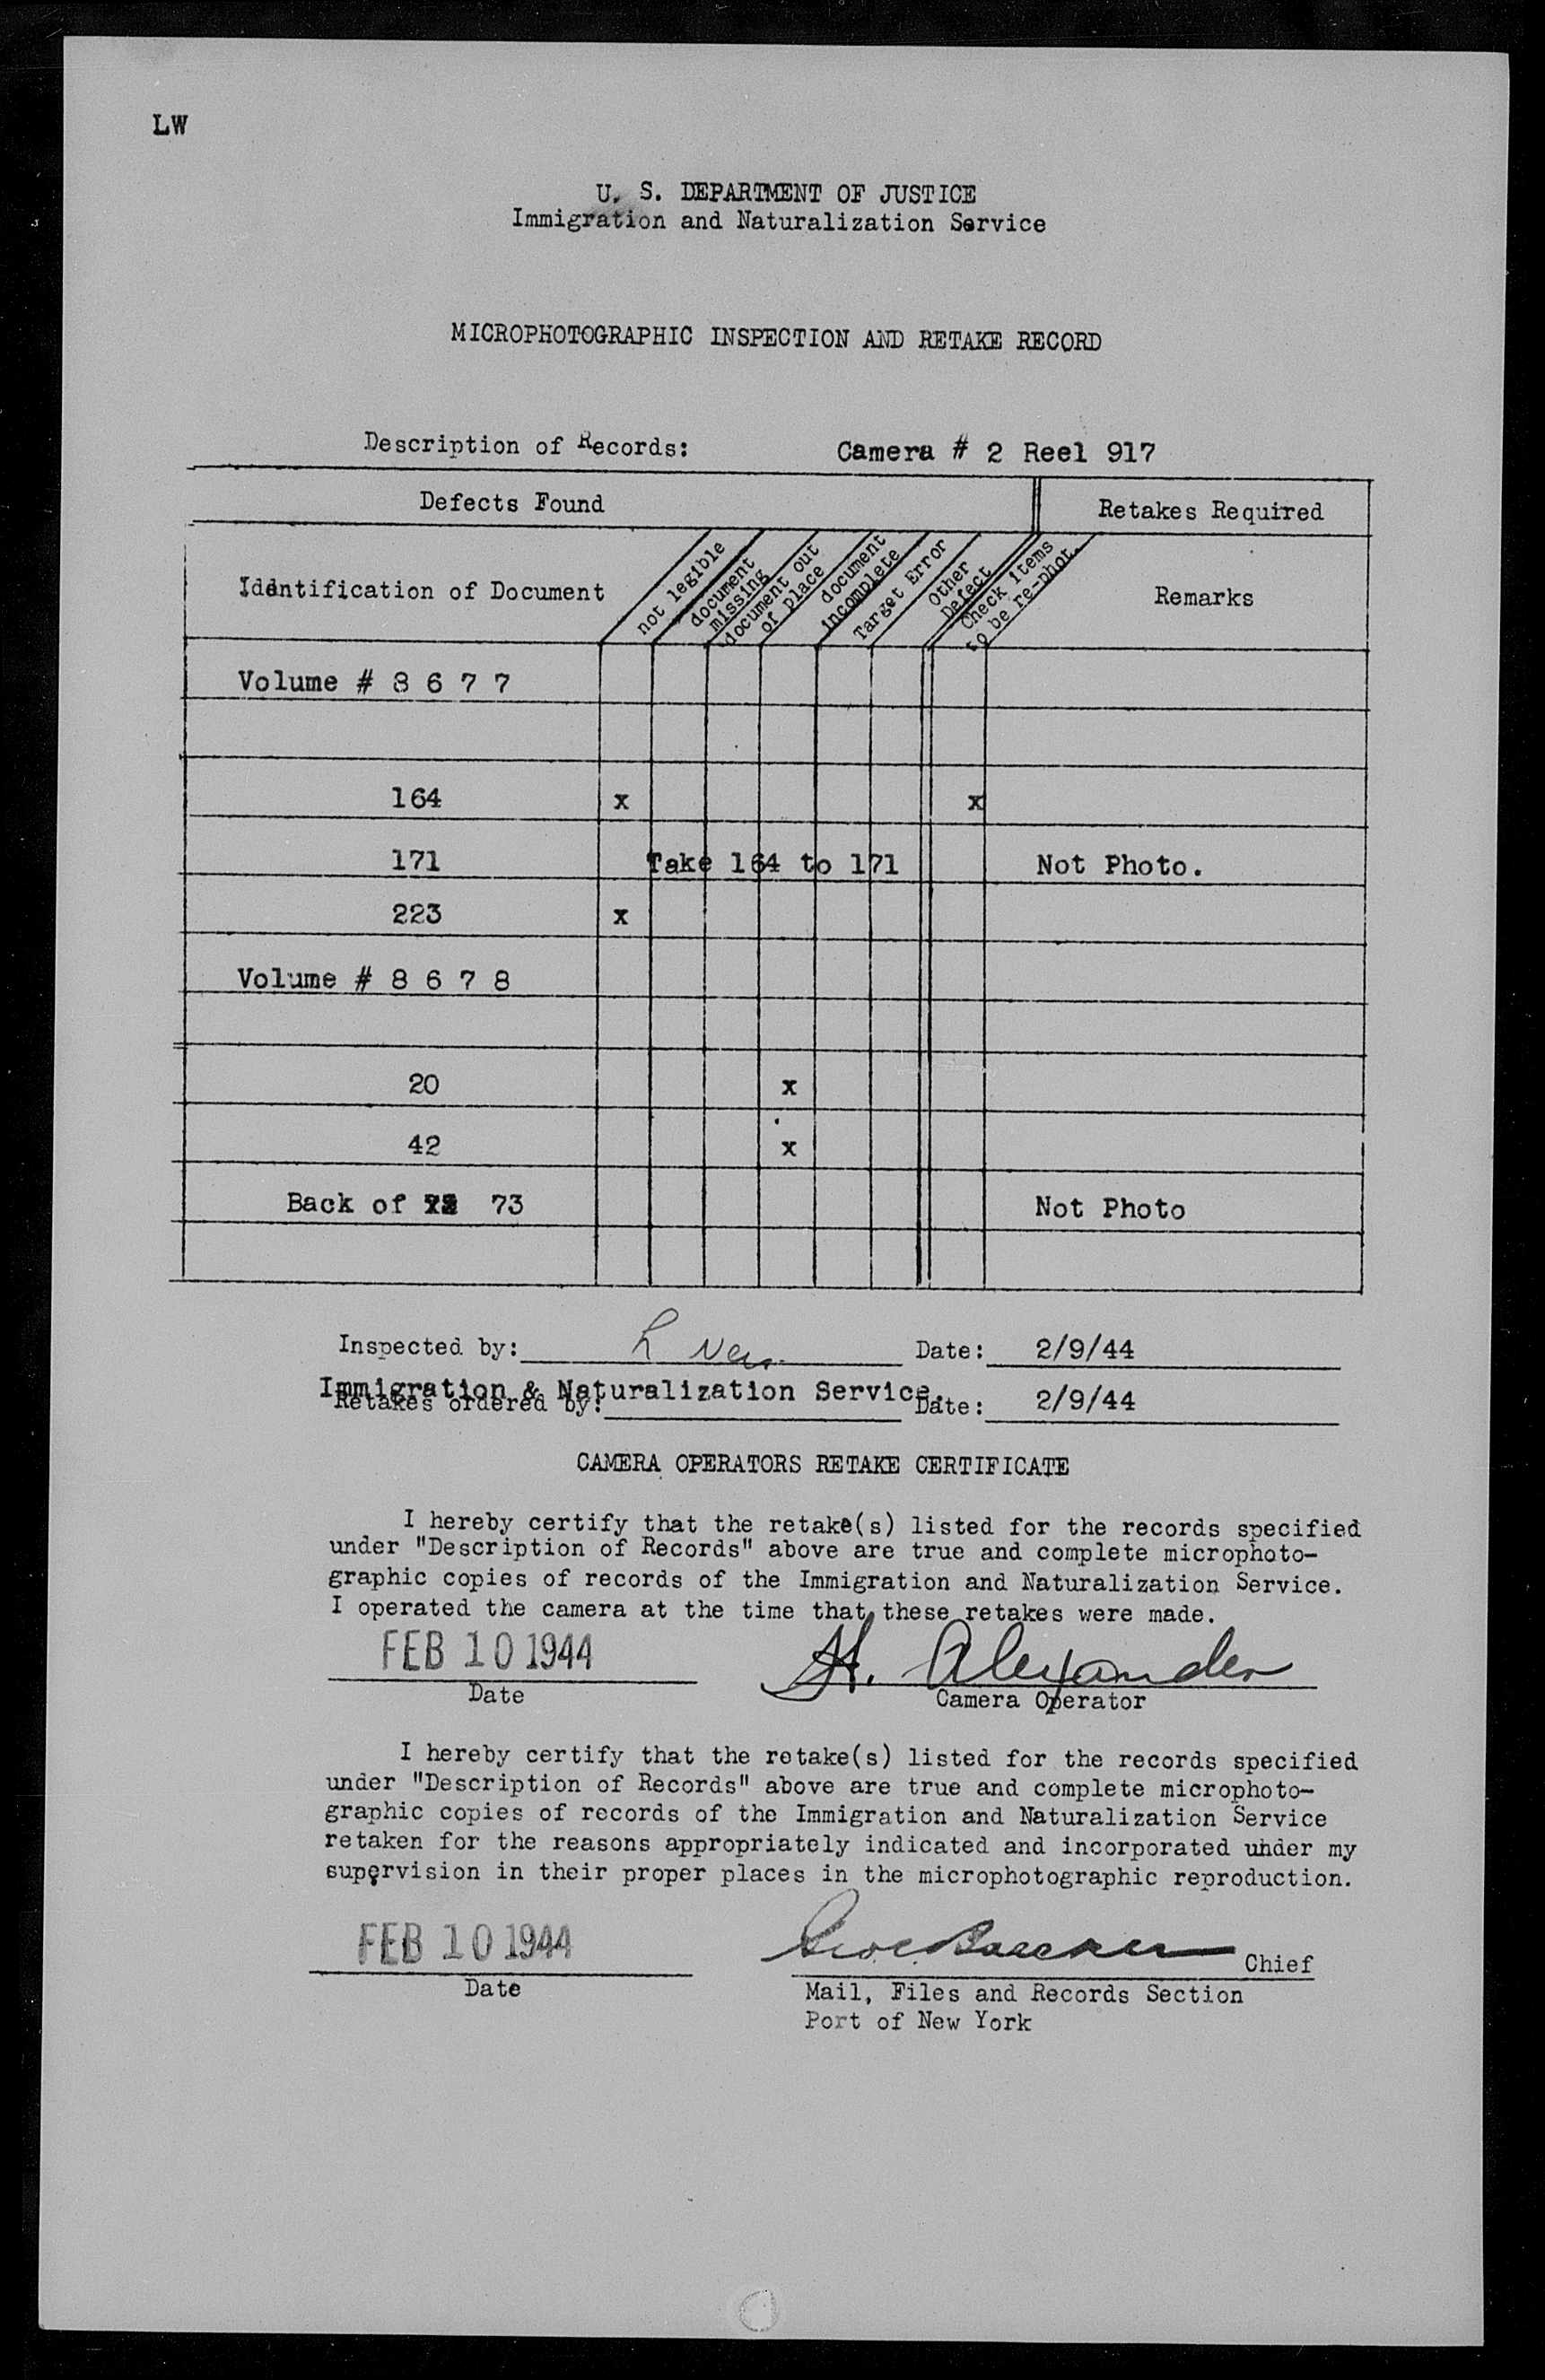 LW
U. S. DEPARTMENT OF JUSTICE
Immigration and Naturalization Service
MICROPHOTOGRAPHIC INSPECTION AND RETAKE RECORD
Description of Records: Camera # 2 Reel 917
Defects Found Retakes Required
Identification of Document
not legible
document missing
document out of place
document incomplete
Target Error
Other Defect
Check items to be re-phot.
Remarks
Volume # 8 6 7 7
164 x x
171 Take 164 to 171 Not Photo.
223 x
Volume # 8 6 7 8
20 x
42 x
Back of 73 Not Photo
Inspected by: Date: 2/9/44
Immigration & Naturalization Service.
Retakes ordered by: Date: 2/9/44
CAMERA OPERATORS RETAKE CERTIFICATE
I hereby certify that the retake(s) listed for the records specified
under "Description of Records" above are true and complete microphoto-
graphic copies of records of the Immigration and Naturalization Service.
I operated the camera at the time that these retakes were made.
FEB 10 1944 H. Alexander
Date Camera Operator
I hereby certify that the retake(s) listed for the records specified
under "Description of Records" above are true and complete microphoto-
graphic copies of records of the Immigration and Naturalization Service
retaken for the reasons appropriately indicated and incorporated under my
supervision in their proper places in the microphotographic reproduction.
FEB 10 1944 Chief
Date Mail, Files and Records Section
Port of New York